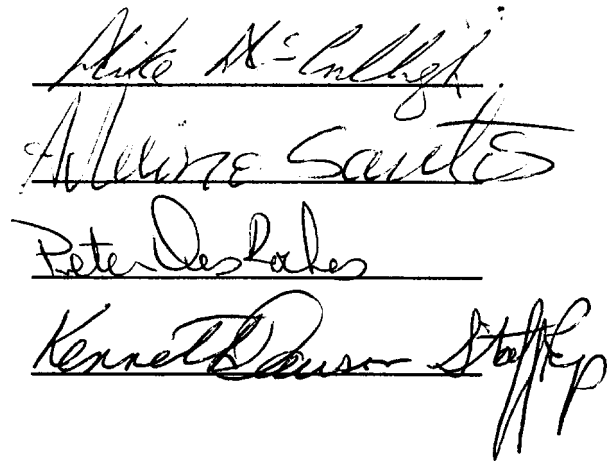 Mike McCullagh
Santos
Peter DesRoches
Kenneth Dawson Staff Rep